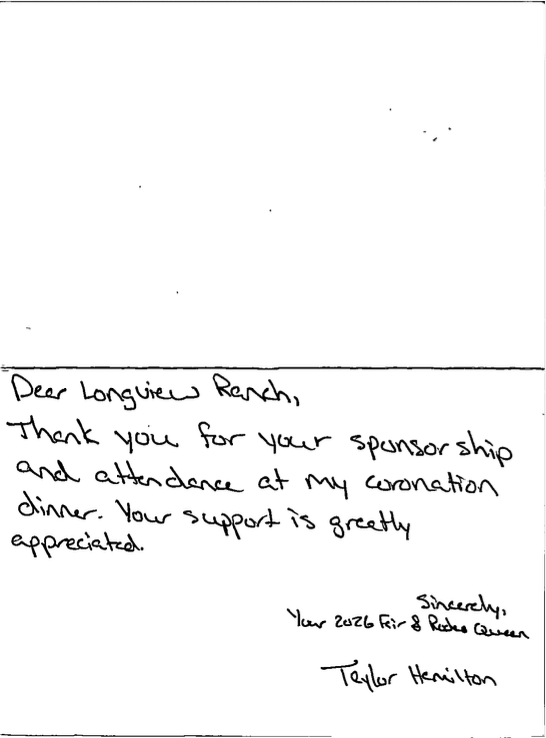 Dear Longview Ranch,
Thank you for your sponsorship
and attendance at my coronation
dinner. Your support is greatly
appreciated.
Sincerely,
Your 2026 Fair & Rodeo Queen
Taylor Hamilton